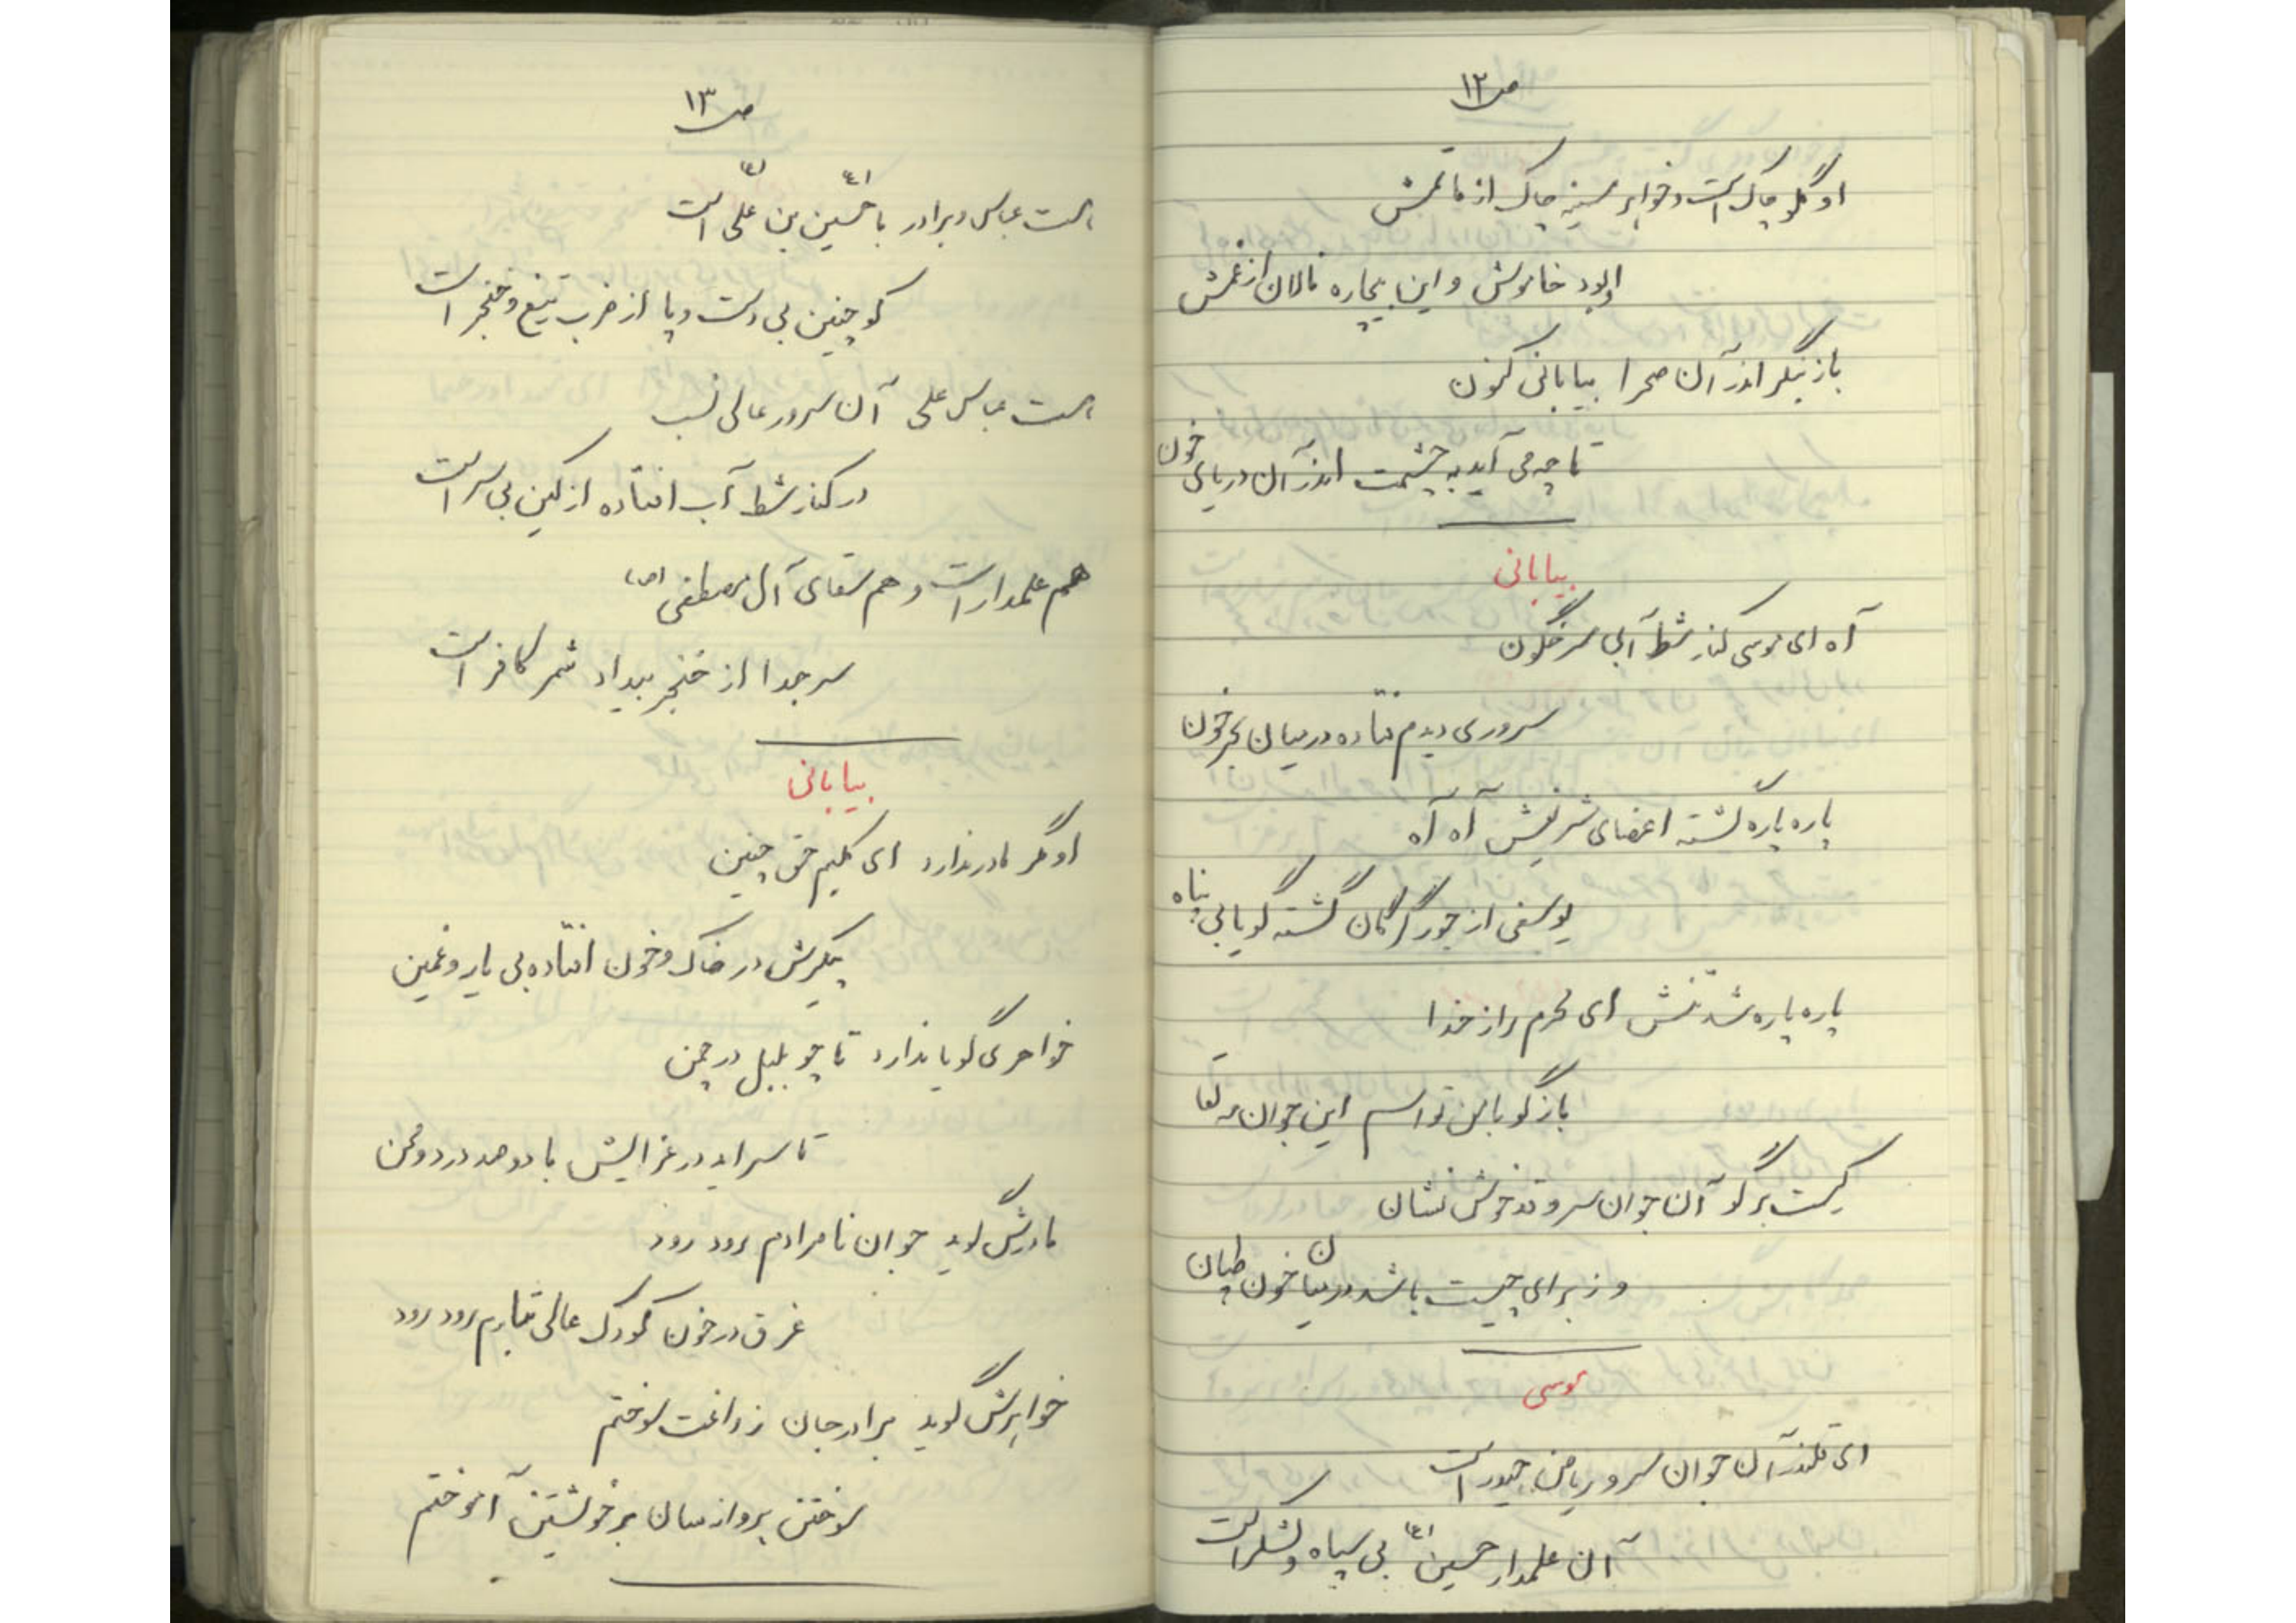 ص ۱۲
او گلو چاک است و خواهر سینه چاک از ماتمش
او بود خاموش و این بیچاره نالان از غمش
باز بنگر اندر آن صحرا بیابانی کنون
تا چه می آید به چشمت اندر آن دریای خون
بیابانی
آه ای موسی کنار شط آبی سرنگون
سروری دیدم فتاده در میان بحر خون
پاره پاره گشته اعضای شریفش آه آه
یوسفی از جور گرگان گشته گویا بی پناه
پاره پاره شد تنش ای محرم راز خدا
باز گو با من تو اسم این جوان مه لقا
کیست برگو آن جوان سرو قد خوش نشان
وز برای چیست باشد در میان خون طپان
موسی
ای قلندر آن جوان سرو ریاض حیدر است
آن علمدار حسین (ع) بی سپاه و لشکر است
ص ۱۳
است عباس و برادر با حسین (ع) بن علی (ع) است
کو چنین بی دست و پا از ضرب تیغ و خنجر است
است عباس علی آن سرور عالی نسب
در کنار شط آب افتاده از کین بی سر است
هم علمدار است و هم سقای آل مصطفی (ص)
سر جدا از خنجر بیداد شمر کافر است
بیابانی
او مگر مادر ندارد ای کلیم حق چنین
پیکرش در خاک و خون افتاده بی یار و غمین
خواهری گویا ندارد تا چو بلبل در چمن
تا سراید در عزایش با دو صد درد و محن
مادرش گوید جوان نامرادم رود رود
غرق در خون کودک عالی تبارم رود رود
خواهرش گوید برادر جان ز داغت سوختم
سوختن پروانه سان بر خویشتن آموختم